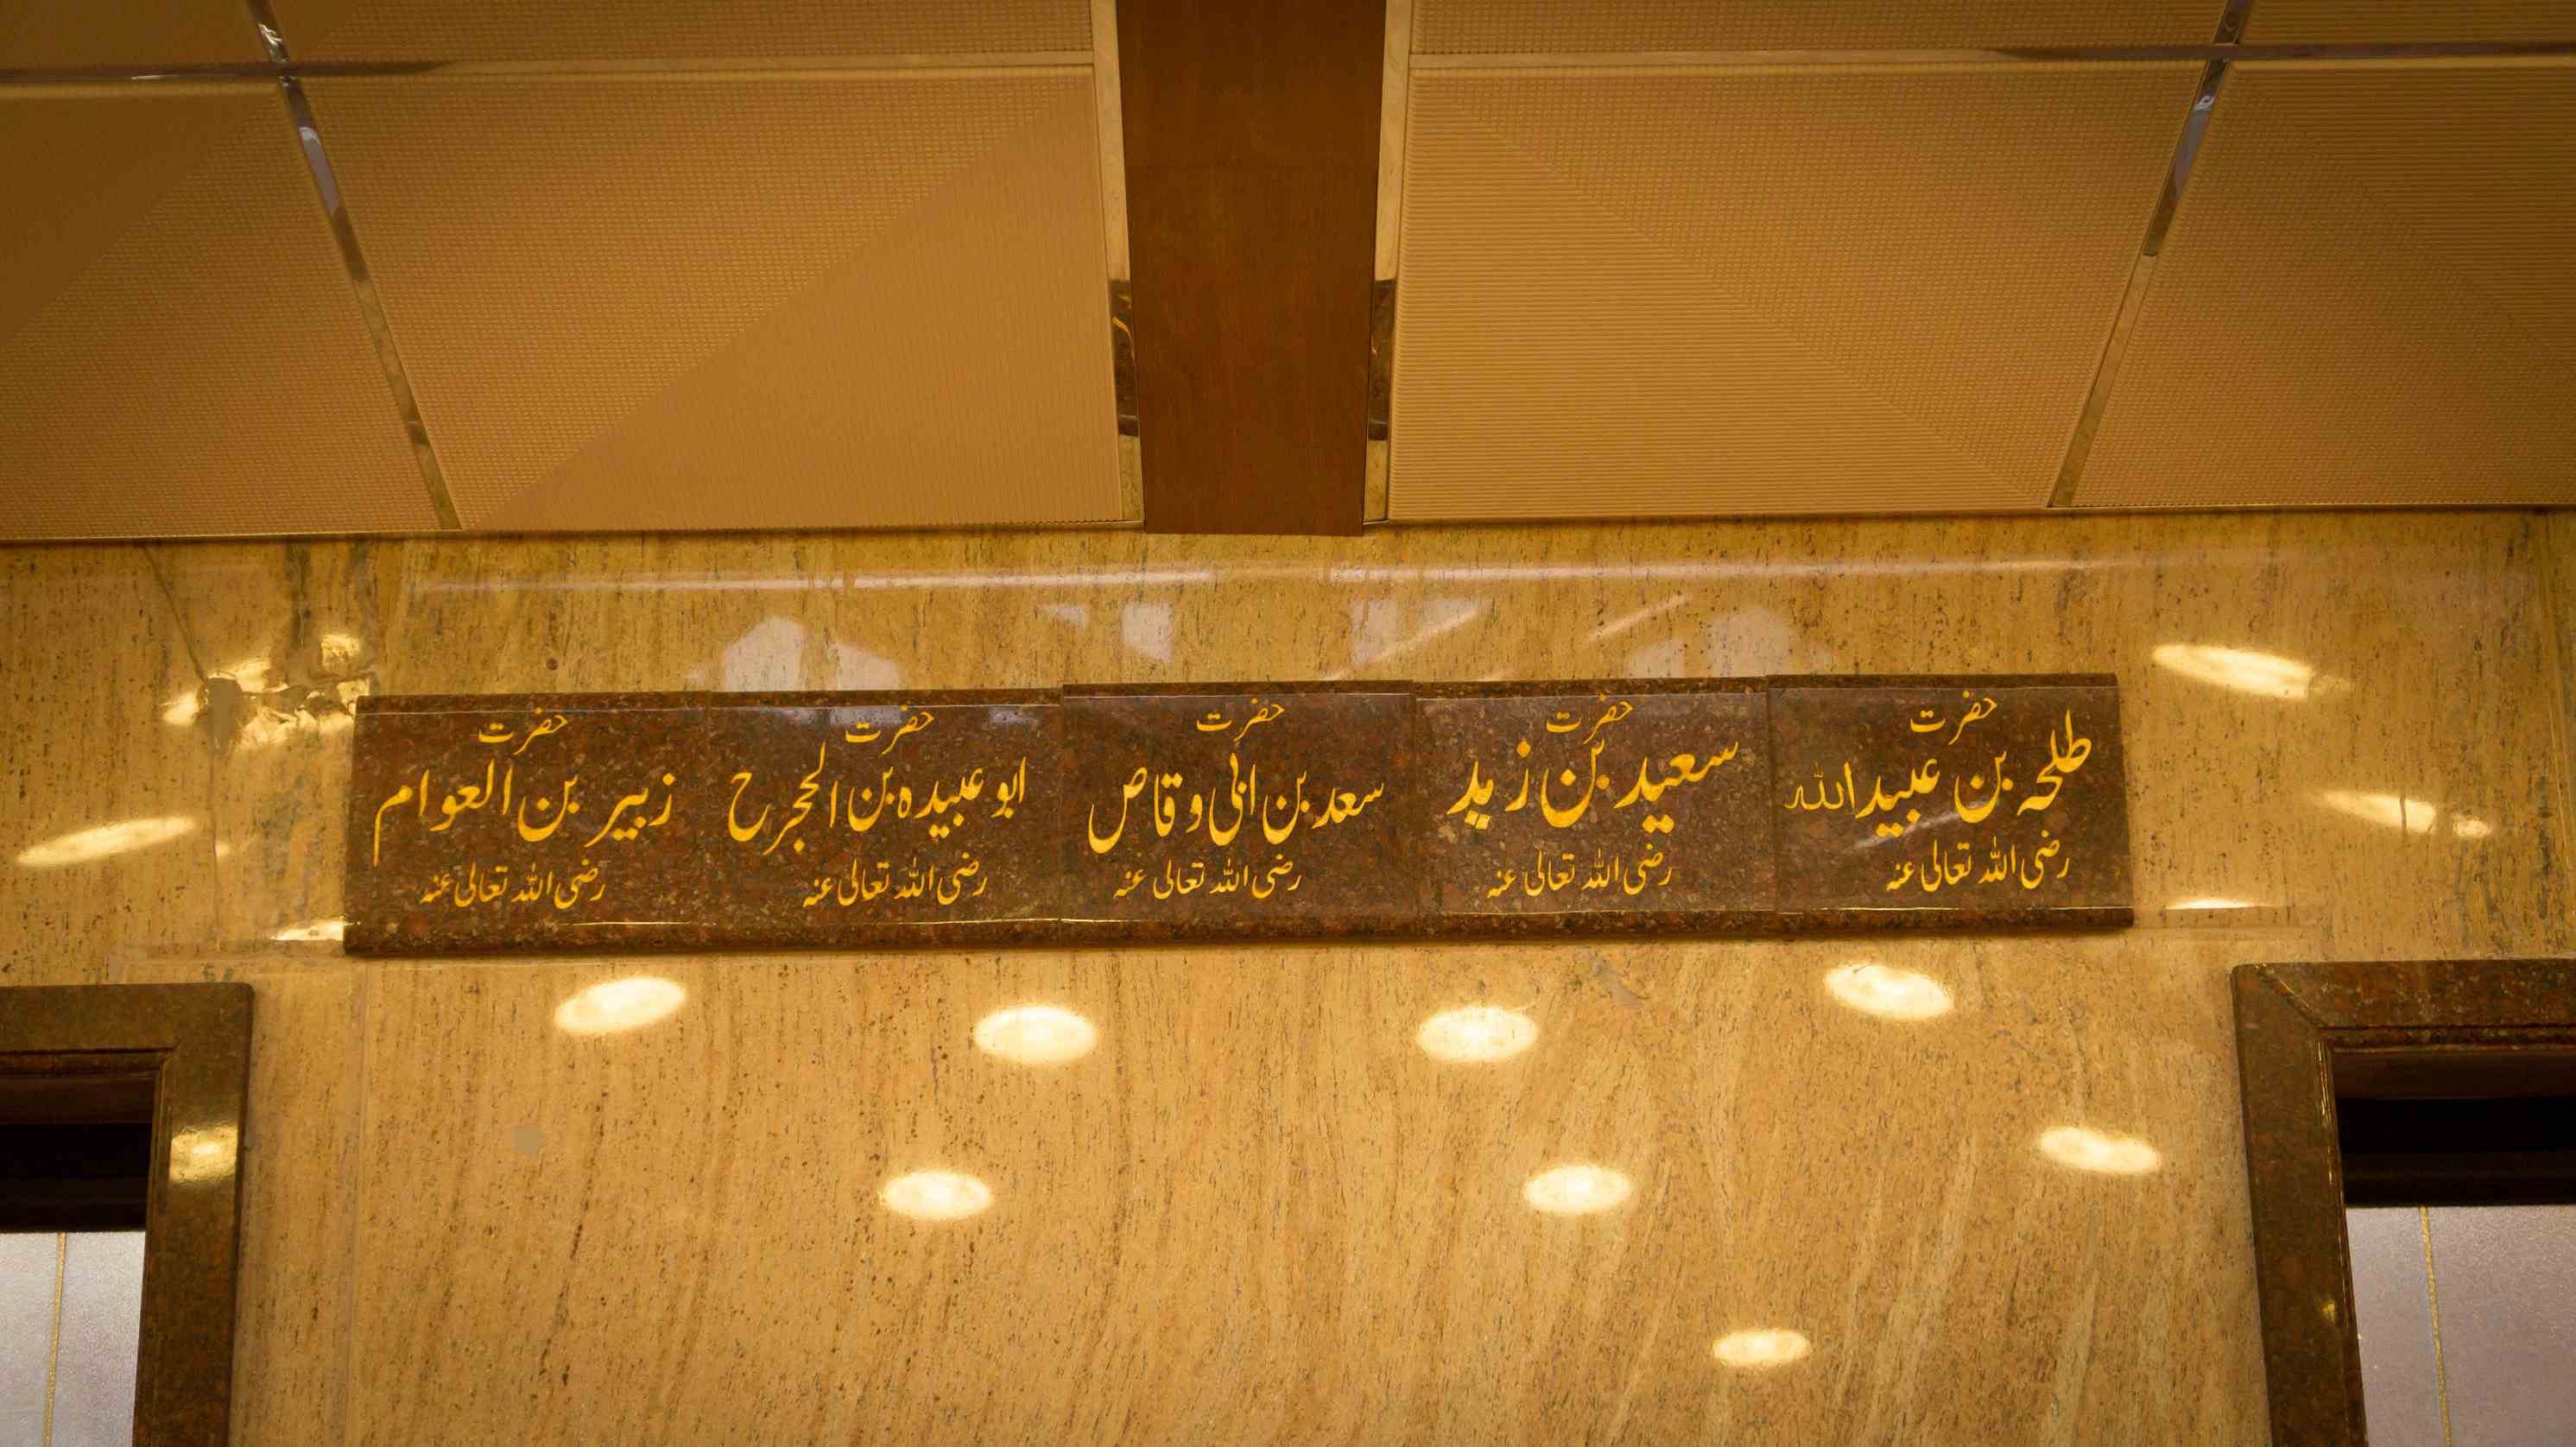 حضرت
طلحہ بن عبیداللہ
رضی اللہ تعالی عنہ
حضرت
سعید بن زید
رضی اللہ تعالی عنہ
حضرت
سعد بن ابی وقاص
رضی اللہ تعالی عنہ
حضرت
ابو عبیدہ بن الجرح
رضی اللہ تعالی عنہ
حضرت
زبیر بن العوام
رضی اللہ تعالی عنہ